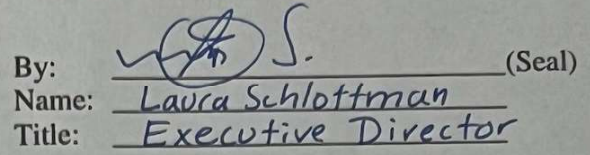 By: S. (Seal)
Name: Laura Schlottman
Title: Executive Director